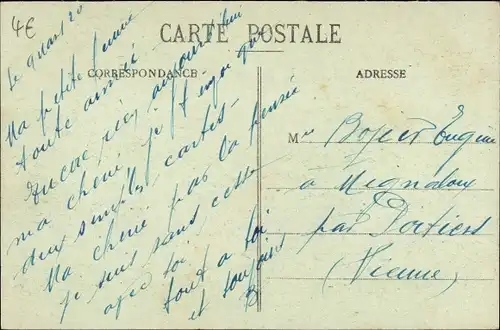 4€
CARTE POSTALE
CORRESPONDANCE
ADRESSE
Le 20
Ma petite femme
toute aimée
Encore rien aujourd'hui
ma cherie je t'envoie que
deux simples cartes-
Ma cherie pas la pensée
je suis sans cesse
avec toi
tout a toi
et toujours
B
Mme Boyer Eugène
à Mignaloux
par Poitiers
(Vienne)